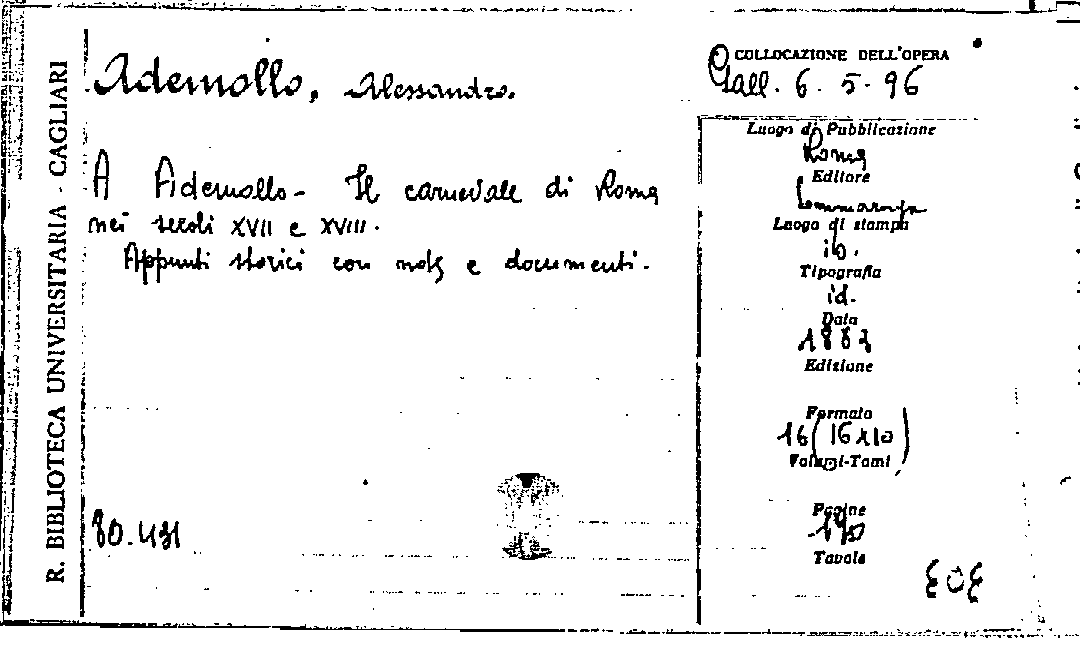 R. BIBLIOTECA UNIVERSITARIA - CAGLIARI
Ademollo, Alessandro.
A Ademollo - Il carnevale di Roma
nei secoli XVII e XVIII.
Appunti storici con note e documenti.
80.431
COLLOCAZIONE DELL'OPERA
Gall. 6. 5. 96
Luogo di Pubblicazione
Roma
Editore
Sommaruga
Luogo di stampa
ib.
Tipografia
id.
Data
1883
Edizione
Formato
16 (16x10)
Volumi-Tomi
Pagine
Tavole